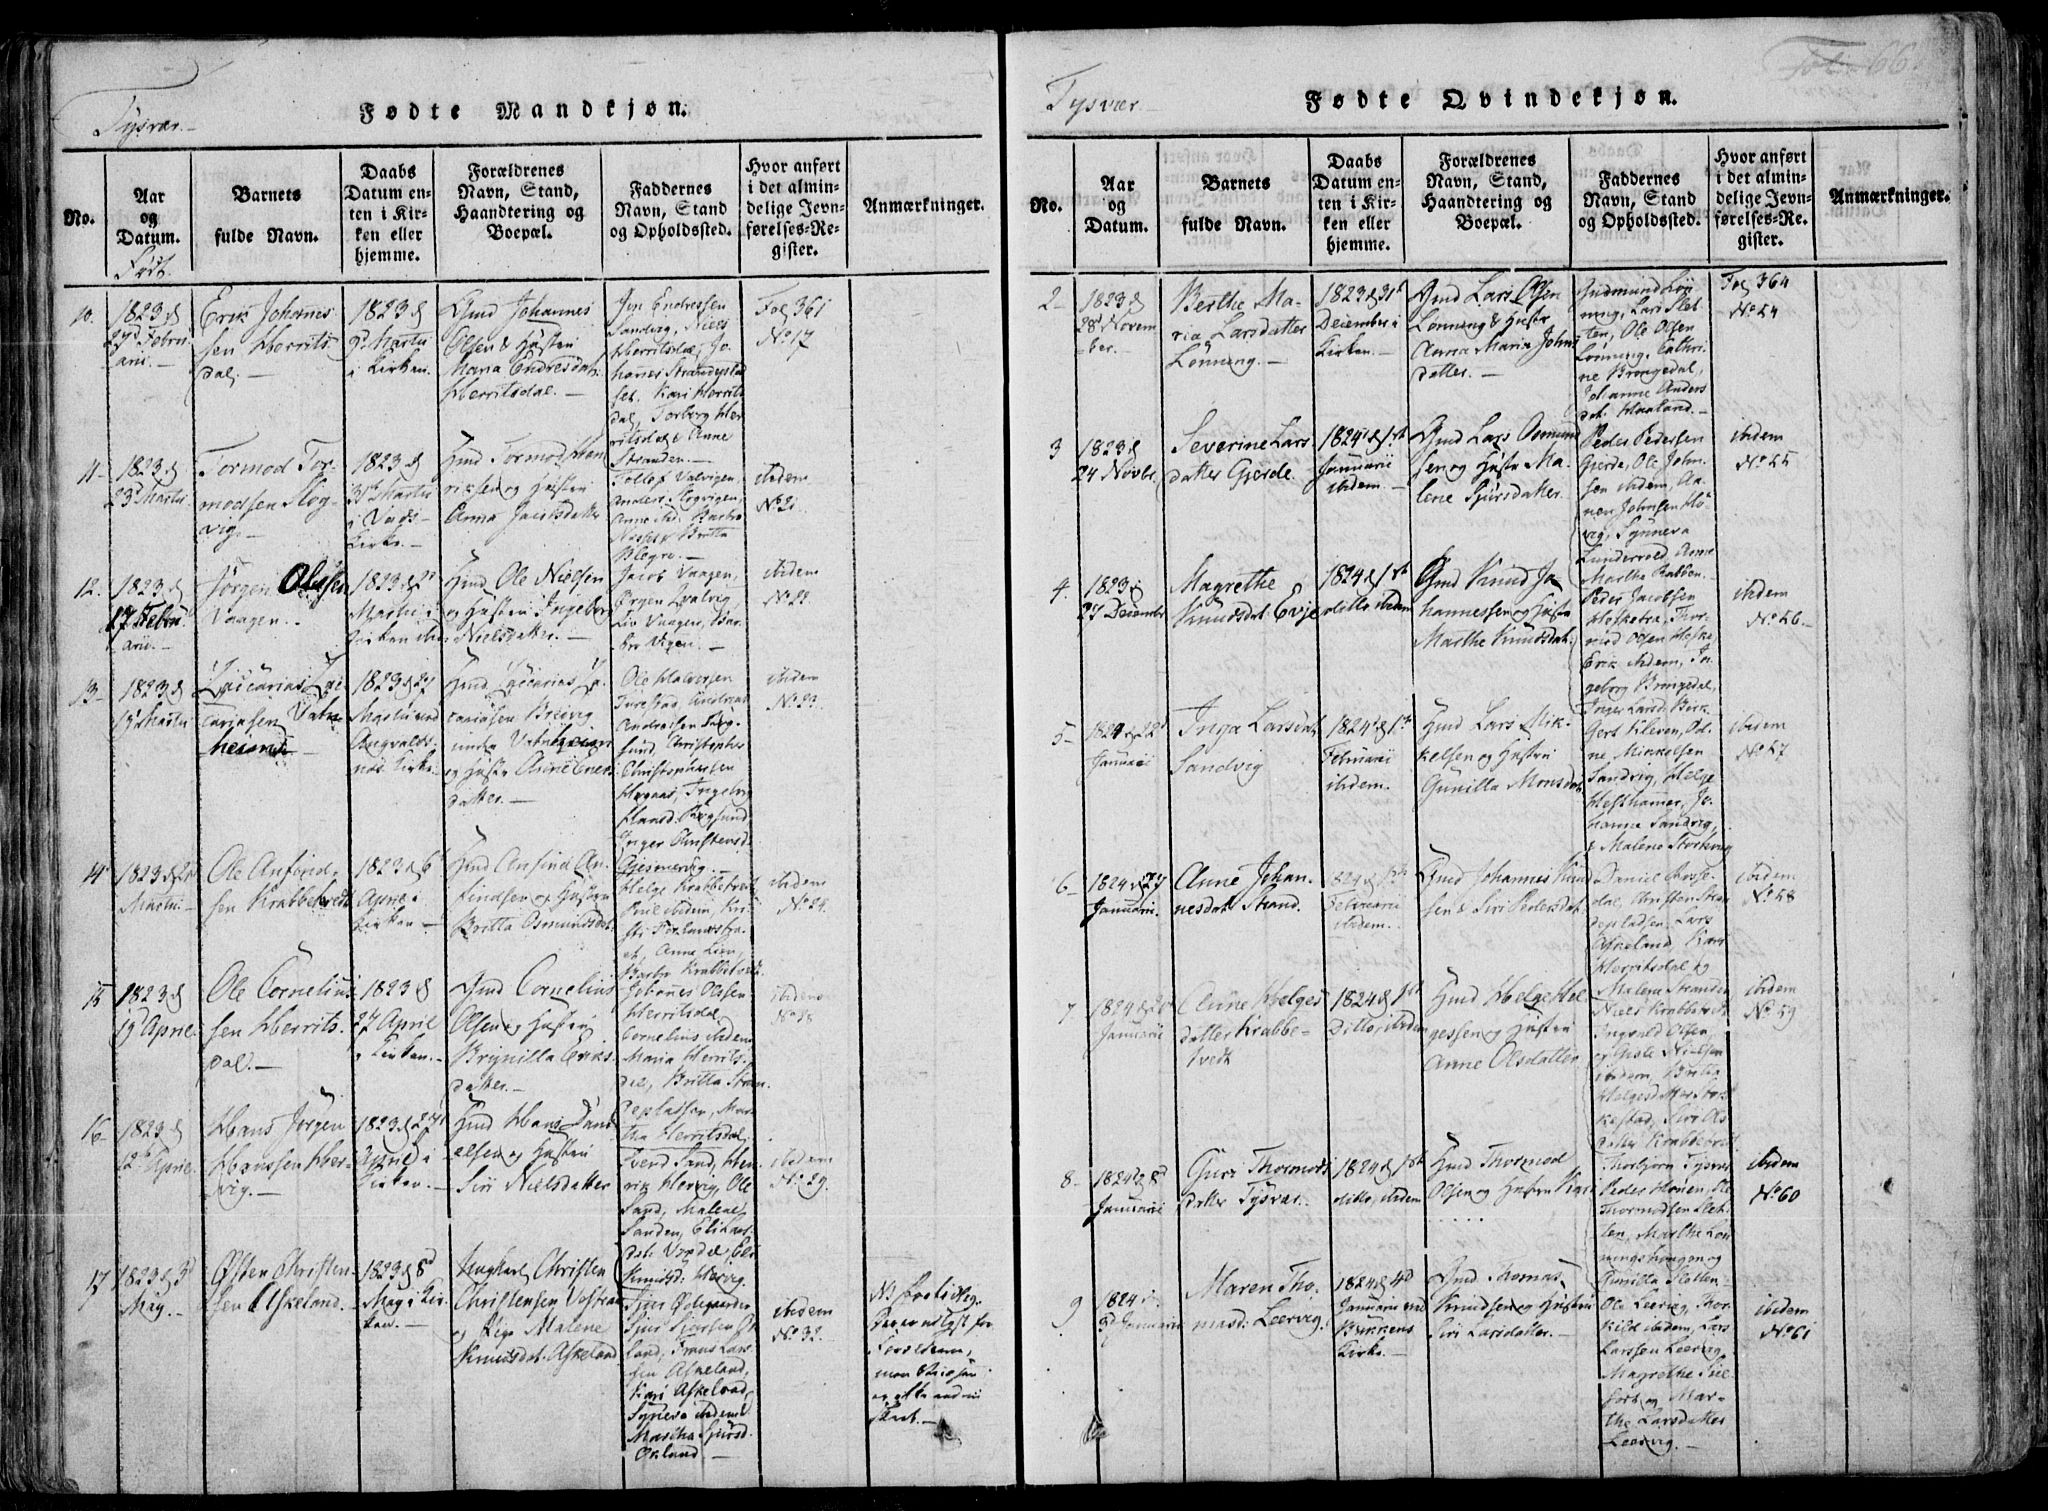 Tysvær.
Fødte Mandkjøn.
No.
Aar
og
Datum.
Født.
Barnets
fulde Navn.
Daabs
Datum en-
ten i Kir-
ken eller
hjemme.
Forældrenes
Navn, Stand,
Haandtering og
Boepæl.
Faddernes
Navn, Stand
og Opholdssted.
Hvor anført
i det almin-
delige Jevn-
førelses-Re-
gister.
Anmærkninger.
10.
1823 d
Febru
arii.
Erik Johannes
sen Herrits
dal.
1823 d
9d Martii
i Kirken.
Gmd Johannes
Olsen & Hustru
Maria Endresdatr
Herritsdal.
Jon Endressen
Sandeig, Niels
Herritsdal, Jo-
hannes
Kari Herrits
dal, Torborg Her
ritsdal & Anne
Stranden.
Fol 361
No 17
11.
1823 d
23d Martii
Tormod Tor-
modsen Slog-
vig.
1823 d
31te Martii
i Vads-
Kirke.
Gmd Tormod Hen
riksen og Hustru
Anna Jacobsdatter
Tollef Valvigen,
Anders Slogvigen,
Anne ibd. Barbro
& Britta
ibidem
No 21.
12.
1823 d
17 Febru
arii.
Jørgen Olessen
Vaagen.
1823 d 2d
Martii i
Kirken
Gmd Ole Nielsen
og Hustru Ingebor
Nielsdatter.
Jacob Vaagen,
Ørgen Qvalvig
Liv Vaagen, Bar-
bro Vigen.
ibidem
No 22.
13.
1823 d
19 Martii
Zaccarias Zac
cariasen Vatne
1823 d 27
Martii ved
Augvalds-
næs Kirke.
Gmd Zaccarias Za-
cariasen Breivig
under
og Hustr Anne Eners
datter.
Ole Halvorsen
Andreas
Andreasen
sund, Christopher
Christophersen
Ingebor
Hansd. Røgsund
Inger Christensd.
ibidem
No 23.
14
1823 d 21
Martii.
Ole Anfind-
sen Krabbetvedt
1823 d 6t
April i
Kirken
Gmd Anfind An-
findsen og Hustru
Britta Osmundsdat.
Helge Krabbetvedt
Poul ibidem, Kir-
sti
Anne Lien,
Barbr Krabbetvedt.
ibidem
No 24.
15
1823 d
19 April.
Ole Cornelius-
sen Herrits-
dal.
1823 d
27 April
i Kirken.
Gmd Cornelius
Olsen og Hustru
Brynilla Eriks
datter.
Johannes Olsen
Herritsdal,
Cornelius ibidem
Maria Herrits-
dal, Britta Stran
depladsen, Mar-
tha Herritsdal.
ibidem
No 28
16
1823 d
12te April
Hans Jørgen
Hanssen Her-
vig.
1823 d 27d
April i
Kirken.
Gmd Hans Dani
elsen og Hustru
Siri Nielsdatter
Svend Sand, Hen
rik Hervig, Ole
Sand, Malene
Sanden, Eli Lars
dat. Vordal, Eli
Knudsd. Hervig.
ibidem
No 29.
17
1823 d 3d
May.
Østen Christen-
sen Askeland.
1823 d 8d
May i Kir
ken.
Ungkarl Christen
Christensen
og Pige Malene
Knudsdat. Askeland
Sjur Ødegaarden
Sjur Sjursen
land, Frans Lars-
sen Askeland,
Kari Askeland,
Synneva ibidem
Martha Sjursd.
Okland.
ibidem
No 32.
NB
Der er udlyst for
Forældrene,
men
og ofte
skeet.
Tysvær
Fødte Qvindekjøn.
Folio 66.
No.
Aar
og
Datum.
Barnets
fulde Navn.
Daabs
Datum en-
ten i Kir-
ken eller
hjemme.
Forældrenes
Navn, Stand,
Haandtering og
Boepæl.
Faddernes
Navn, Stand
og Opholdssted.
Hvor anført
i det almin-
delige Jevn-
førelses-Re-
gister.
Anmærkninger.
2
1823 d
28d Novem
ber.
Berthe Ma-
ria Larsdatter
Lønning.
1823 d 31te
December i
Kirken.
Gmd Lars Olsen
Lønning & Hustr
Anna Maria Johns
datter.
Gudmund Løn-
ning, Lars Slet-
ten, Ole Olsen
Lønning, Cathri-
ne Brongedal,
Johanne Anders
dat. Haaland.
Fol 364
No 54
3
1823 d
24 Novbr.
Severine Lars
datter Gjerde.
1824 d 1ste
Januarii
ibidem.
Gmd Lars Osmund
sen og Hustr Ma-
lene Sjursdatter.
Peder Pedersen
Gjerde, Ole John-
sen ibidem, Aa-
nen Johnsen Hø-
vig, Synneva
Lundervold, Anne
Martha Rabben.
ibidem
No 55
4.
1823 d
27 December
Magrethe
Knudsdat Evje
1824 d 1ste
ditto ibidem
Gmd Knud Jo
hannessen og Hustr
Marthe Knudsdat.
Peder Jacobsen
Thor-
mod Olsen Heske
Erik ibidem, In
geborg Brongedal,
Inger Larsd. Birk
ibidem
No 56
5
1824 d 22d
Januarii
Inga Larsdat
Sandvig
1824 d 1ste
Februarii
ibidem.
Gmd Lars Mik-
kelsen og Hustru
Gunilla Monsdat
Gert Kleven, Od-
ne Mikkelsen
Sandvig, Helge
Hesthamer, Jo-
hanna Sandvig,
& Malene
ibidem
No 57
6
1824 d 27
Januarii.
Anne Johan-
nesdat Strand.
1824 d 1ste
Februarii
ibidem.
Gmd Johannes Knud
sen & Siri Pedersdat.
Daniel
dal, Christen Stran
depladsen, Lars
Askeland, Kari
Herritsdal og
Malene Stranden
ibidem
No 58
7
1824 d 20
Januarii
Anne Helges
datter Krabbe-
tvedt
1824 d 1ste
Ditto ibidem
Gmd Helge Hel
gessen og Hustru
Anne Olsdatter
Niels Krabbetvedt
Ingvald Olsen,
og Gisle Nielsen
ibidem, Britta
Helgesdatter Stor-
kestad, Siri Ols
datter Krabbetvedt
ibidem
No 59
8
1824 d 8d
Januarii
Guri Thormods
datter Tysvær.
1824 d 1ste
ditto, ibidem
Gmd Thormod
Olsen og Hustru
Thorbjørn Tysvær
Peder
Thormodsen Slet-
ten, Marthe Løn
ningshougen og
Gunilla Sletten
ibidem
No 60
9
1824 d
3d Januarii
Maren Tho-
masd: Leervig.
1824 d 4d
Januarii ved
Kirke.
Gmd Thomas
Knudsen og Hustru
Siri Larsdatter.
Ole Leervig, Thor-
kild ibidem, Lars
Larssen Leervig,
Magrethe
og Mar-
the Larsdatter
Leervig.
ibidem
No 61